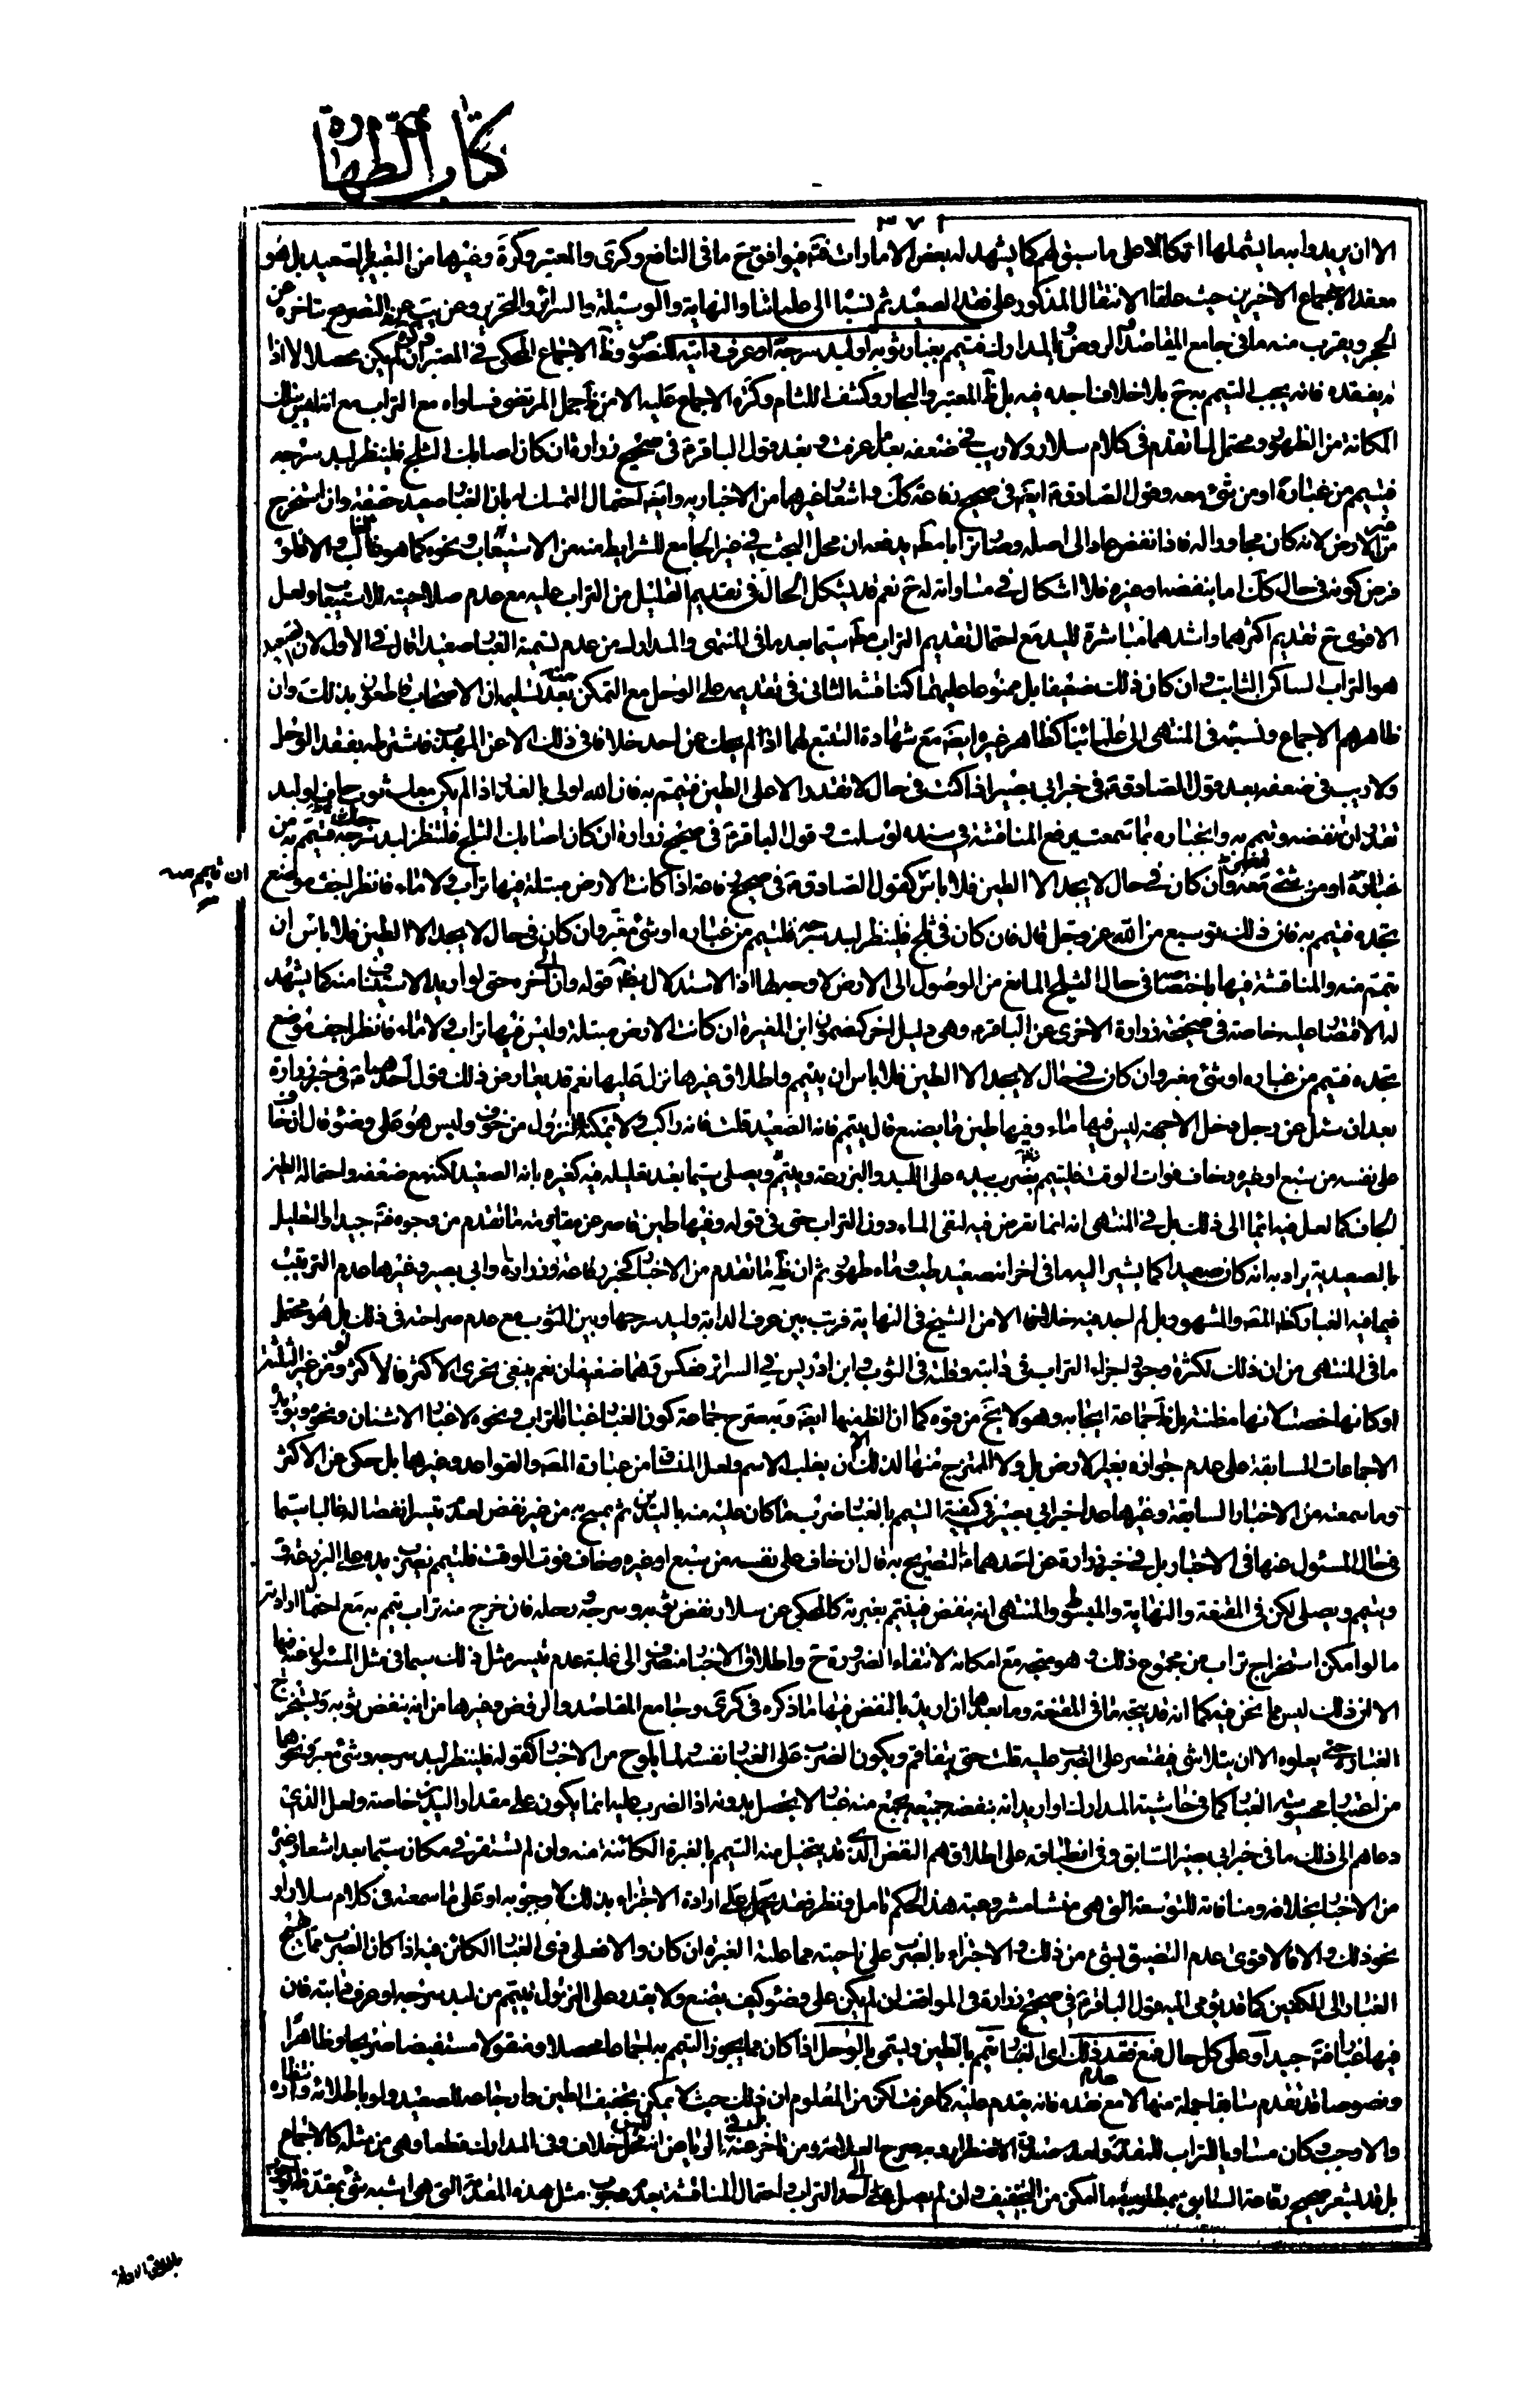 كتاب الطهارة
٣٧٢
الا ان يريدوا بها ما يشملها اتكالا على ما سبق لهم كما يشهد له بعض الامارات فتأمل فيوافق ح ما في النافع وكرى والمعتبر وكرة وغيرها من التعبير بالصعيد بل هو
معقد الاجماع الاخيرين حيث علقا الانتقال المذكور على فقد الصعيد ثم نسبا الى علمائنا والنهاية والوسيلة والسرائر والتحرير وعن يب التصريح بتاخره عن
الحجر ويقرب منه ما في جامع المقاصد والروض والمدارك فتيمم بغبار ثوبه او لبد سرجه او عرف دابته للنصوص وظ الاجماع المحكي في المعتبر ان لم يكن محصلا لا اذا
لم يفقده فانه يجب التيمم به ح بلا خلاف اجده فيه بل ظ المعتبر والبحار وكشف اللثام وكرة الاجماع عليه الا من ظ جمل المرتضى فساواه مع التراب مع انه ليس بتلك
المكانة من الظهور ومحتمل لما تقدم في كلام سلار ولا ريب في ضعفه بعد ما عرفت وبعد قول الباقر ع في صحيح زرارة ان كان اصابك الثلج فلينظر لبد سرجه
فيتيمم من غباره او من شئ معه وقول الصادق ع ايض في صحيح رفاعة كك واشعار غيرهما من الاخبار به وايض احتمال التمسك له بان الغبار صعيد حقيقة وان استخرج
من غير الارض لانه كان مجاورا له فاذا نفض عاد الى اصله وصار ترابا مط يدفعه ان محل البحث في غير الجامع للشرايط منه من الاستيعاب ونحوه كما هو الغالب والا فلو
فرض كونه في حال كك اما بنفضه او غيره فلا اشكال في مساواته له ح نعم قد يشكل الحال في تقديم القليل من التراب عليه مع عدم صلاحيته للاستيعاب ولعل
الاقوى ح تقديم اكثرهما واشدهما مباشرة لليد مع احتمال تقديم التراب مط سيما بعد ما في المنتهى والمدارك من عدم تسمية الغبار صعيدا قال في الاول لان الصعيد
هو التراب الساكن الثابت وان كان ذلك ضعيفا بل ممنوعا عليهما كمناقشة الثاني في تقديمه على الوحل مع التمكن منه بعد تسليمه ان الاصحاب قاطعون بذلك وان
ظاهرهم الاجماع ونسبته في المنتهى الى علمائنا كظاهر غيره ايض مع شهادة التتبع لهما اذ لم يحك عن احد خلاف في ذلك الا عن المهذب فاشترط بفقد الوحل
ولا ريب في ضعفه بعد قول الصادق ع في خبر ابي بصير اذا كنت في حال لا تقدر الا على الطين فتيمم به فان الله اولى بالعذر اذا لم يكن معك ثوب جاف او لبد
تقدر ان تنفضه وتيمم به وانجباره بما سمعت يرفع المناقشة في سنده لو سلمت وقول الباقر ع في صحيح زرارة ان كان اصابه الثلج فلينظر لبد سرجه فيتيمم به من
غباره او من شئ معه وان كان في حال لا يجد الا الطين فلا باس ان تيمم منه كقول الصادق ع في صحيح رفاعة اذا كانت الارض مبتلة ليس فيها تراب ولا ماء فانظر اجف موضع
تجده فتيمم به فان ذلك توسيع من الله عز وجل قال فان كان في ثلج فلينظر لبد سرجه فليتيمم من غباره او شئ مغبر وان كان في حال لا يجد الا الطين فلا باس ان
تيمم منه والمناقشة فيها باختصاصها في حال الثلج المانع من الوصول الى الارض لا وجه لها اذ الاستدلال بظ قوله وان الى آخره حتى لو اريد الاستيناف منه كما يشهد
له الاقتصار عليه خاصة في صحيحة زرارة الاخرى عن الباقر ع وهي دليل اخر كمضمون ابن المغيرة ان كانت الارض مبتلة وليس فيها تراب ولا ماء فانظر اجف موضع
تجده فتيمم من غباره او شئ مغبر وان كان في حال لا يجد الا الطين فلا باس ان يتيمم واطلاق غيرها نزل عليها نعم قد يعارض ذلك قول احدهما ع في خبر زرارة
بعد ان سئل عن رجل دخل الاجمة ليس فيها ماء وفيها طين ما يصنع قال يتيمم فانه الصعيد قلت فانه راكب ولا يمكنه النزول من خوف وليس هو على وضوء قال ان خاف
على نفسه من سبع او غيره وخاف فوات الوقت فليتيمم يضرب بيده على اللبد والبرذعة ويتيمم ويصلي سيما بعد تعليله فيه كغيره بانه الصعيد لكنه مع ضعفه واحتماله الطين
الجاف كما لعل فيه ايماء الى ذلك بل في المنتهى انه انما تعرض فيه لنفي الماء دون التراب حتى في قوله وفيها طين قاصر عن مقاومة ما تقدم من وجوه فتأمل جيدا والتعليل
بالصعيدية يراد به انه كان صعيدا كما يشير اليه ما في اخر انه صعيد طيب وماء طهور ثم ان ظ ما تقدم من الاخبار كخبر رفاعة وزرارة وابي بصير وغيرها عدم الترتيب
فيما فيه الغبار كظ المص والمشهور بل لم اجد فيه خلافا الا من الشيخ في النهاية فرتب بين عرف الدابة ولبد سرجها وبين الثوب مع عدم صراحته في ذلك بل هو محتمل
ما في المنتهى من ان ذلك لكثرة وجود اجزاء التراب في دابته وقلته في الثوب وابن ادريس في السرائر فعكس وهما ضعيفان نعم ينبغي تحري الاكثر فالاكثر ولو من غير الثلثة
او كانها خصت لانها مظنته بل ظ جماعة ايجابه وهو لا يخ من قوة كما ان الظ منها ايض وبه صرح جماعة كون الغبار غبار التراب ونحوه لا غبار الاشنان ونحوه ويؤيده
الاجماعات السابقة على عدم جوازه بغير الارض بل ولا الممتزج منها لذلك الا ان يغلب الاسم ولعل المنساق من عبارة المص والقواعد وغيرهما بل حكي عن الاكثر
وما سمعته من الاخبار السابقة وغيرها عدا خبر ابي بصير في كيفية التيمم بالغبار ضرب ما كان عليه منه باليدين ثم يمسح به من غير نفض لعدم تيسر انفصاله غالبا سيما
في حال المسئول عنها في الاخبار بل في خبر زرارة عن احدهما ع التصريح به قال ان خاف على نفسه من سبع او غيره وخاف فوت الوقت فليتيمم يضرب بيده على البرذعة
ويتيمم ويصلي لكن في المقنعة والنهاية والمبسوط والمنتهى انه ينفض فيتيمم بغبرته كالمحكي عن سلار نفض ثوبه وسرجه ورحله فان خرج منه تراب تيمم به مع احتمال ارادته
ما لو امكن استخراج تراب من مجموع ذلك وهو متجه مع امكانه لانتفاء الضرورة ح واطلاق الاخبار منصرف الى غلبة عدم تيسر مثل ذلك سيما في مثل المسئول عنه فيها
الا ان ذلك ليس مما نحن فيه كما انه قد يتجه ما في المقنعة وما بعدها ان اريد بالنفض فيها ما ذكره في كرى وجامع المقاصد والروض وغيرها من انه ينفض ثوبه ويستخرج
الغبار حتى يعلوه الا ان يتلاشى فيقتصر على الضرب عليه قلت حتى يتفاقم ويكون الضرب على الغبار نفسه لما يلوح من الاخبار كقوله فلينظر لبد سرجه وشئ مغبر ونحوها
من اعتبار محسوسية الغبار كما في حاشية المدارك او اريد انه بنفضه جميعه يجتمع منه غبار لا يحصل بدونه اذ الضرب عليه انما يكون على مقدار اليدين خاصة ولعل الذي
دعاهم الى ذلك ما في خبر ابي بصير السابق وفي انطباقه على اطلاقهم النفض الذي قد يتخيل منه التيمم بالغبرة الكائنة منه وان لم تستقر في مكان سيما بعد اشعار غيره
من الاخبار بخلافه ومنافاته للتوسعة التي هي منشأ مشروعية هذا الحكم تامل ونظر فقد يحمل على ارادة الاجتزاء بذلك لا وجوبه او على ما سمعته في كلام سلار او
نحو ذلك والا فالاقوى عدم التضييق بشئ من ذلك والاجتزاء بالضرب على ناحيته مما عليه الغبرة ان كان والا فعلى ذي الغبار الكائن فيه اذا كان الضرب مما يهيج
الغبار الى الكفين كما قد يومي اليه قول الباقر ع في صحيح زرارة في المواقف ان لم يكن على وضوء كيف يصنع ولا يقدر على النزول يتيمم من لبد سرجه او عرف دابته فان
فيها غبارا فتأمل جيدا وعلى كل حال فمع فقد ذلك اي الغبار تيمم بالطين ويسمى بالوحل اذا كان مما يجوز التيمم به اجماعا محصلا ومنقولا مستفيضا صريحا وظاهرا
ونصوصا قد تقدم سابقا جملة منها لا مع عدم فقده فانه يقدم عليه كما عرفت لكن من المعلوم ان ذلك حيث لا يمكن تجفيف الطين وارجاعه للصعيد ولو باطلائه وانتظاره
والا وجب وكان مساويا للتراب للمقدمة ولعدم صدق الاضطرار وبه صرح العلامة ومن تاخر عنه بل في الرياض انه ليس محل خلاف وفي المدارك قطعا وهي من مثله كالاجماع
بل قد يشعر صحيح رفاعة السابق بمطلوبية ما امكن من التجفيف وان لم يصل الى حد التراب واحتمال المناقشة بعدم وجوب مثل هذه المقدمة التي هي اشبه شئ بمقدمة الوجوب
ان تيمم منه
باطلاق الادلة